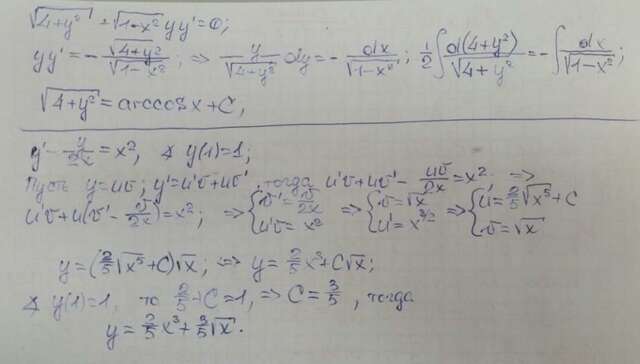 √(4+y²) + √(1-x²) yy' = 0;
yy' = - √(4+y²)/√(1-x²); => y/√(4+y²) dy = - dx/√(1-x²); 1/2 ∫ d(4+y²)/√(4+y²) = - ∫ dx/√(1-x²);
√(4+y²) = arccos x + C,
y' - y/2x = x², ∢ y(1)=1;
Пусть y=uv; y'=u'v+uv', тогда u'v+uv' - uv/2x = x² =>
u'v+u(v' - v/2x) = x²; => { v' = v/2x { u'v = x² => { v = √x { u' = x^(3/2) => { u = 2/5 √x⁵ + C { v = √x
y = (2/5 √x⁵ + C) √x; => y = 2/5 x³ + C√x;
∢ y(1)=1, то 2/5 + C = 1, => C = 3/5, тогда
y = 2/5 x³ + 3/5 √x.